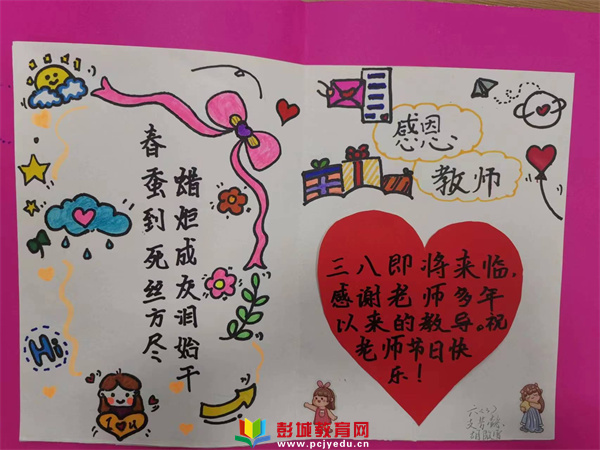 春蚕到死丝方尽
蜡炬成灰泪始干
Hi
感恩
教师
三八即将来临，
感谢老师多年
以来的教导。祝
老师节日快
乐！
彭城教育网
www.pcjyedu.cn